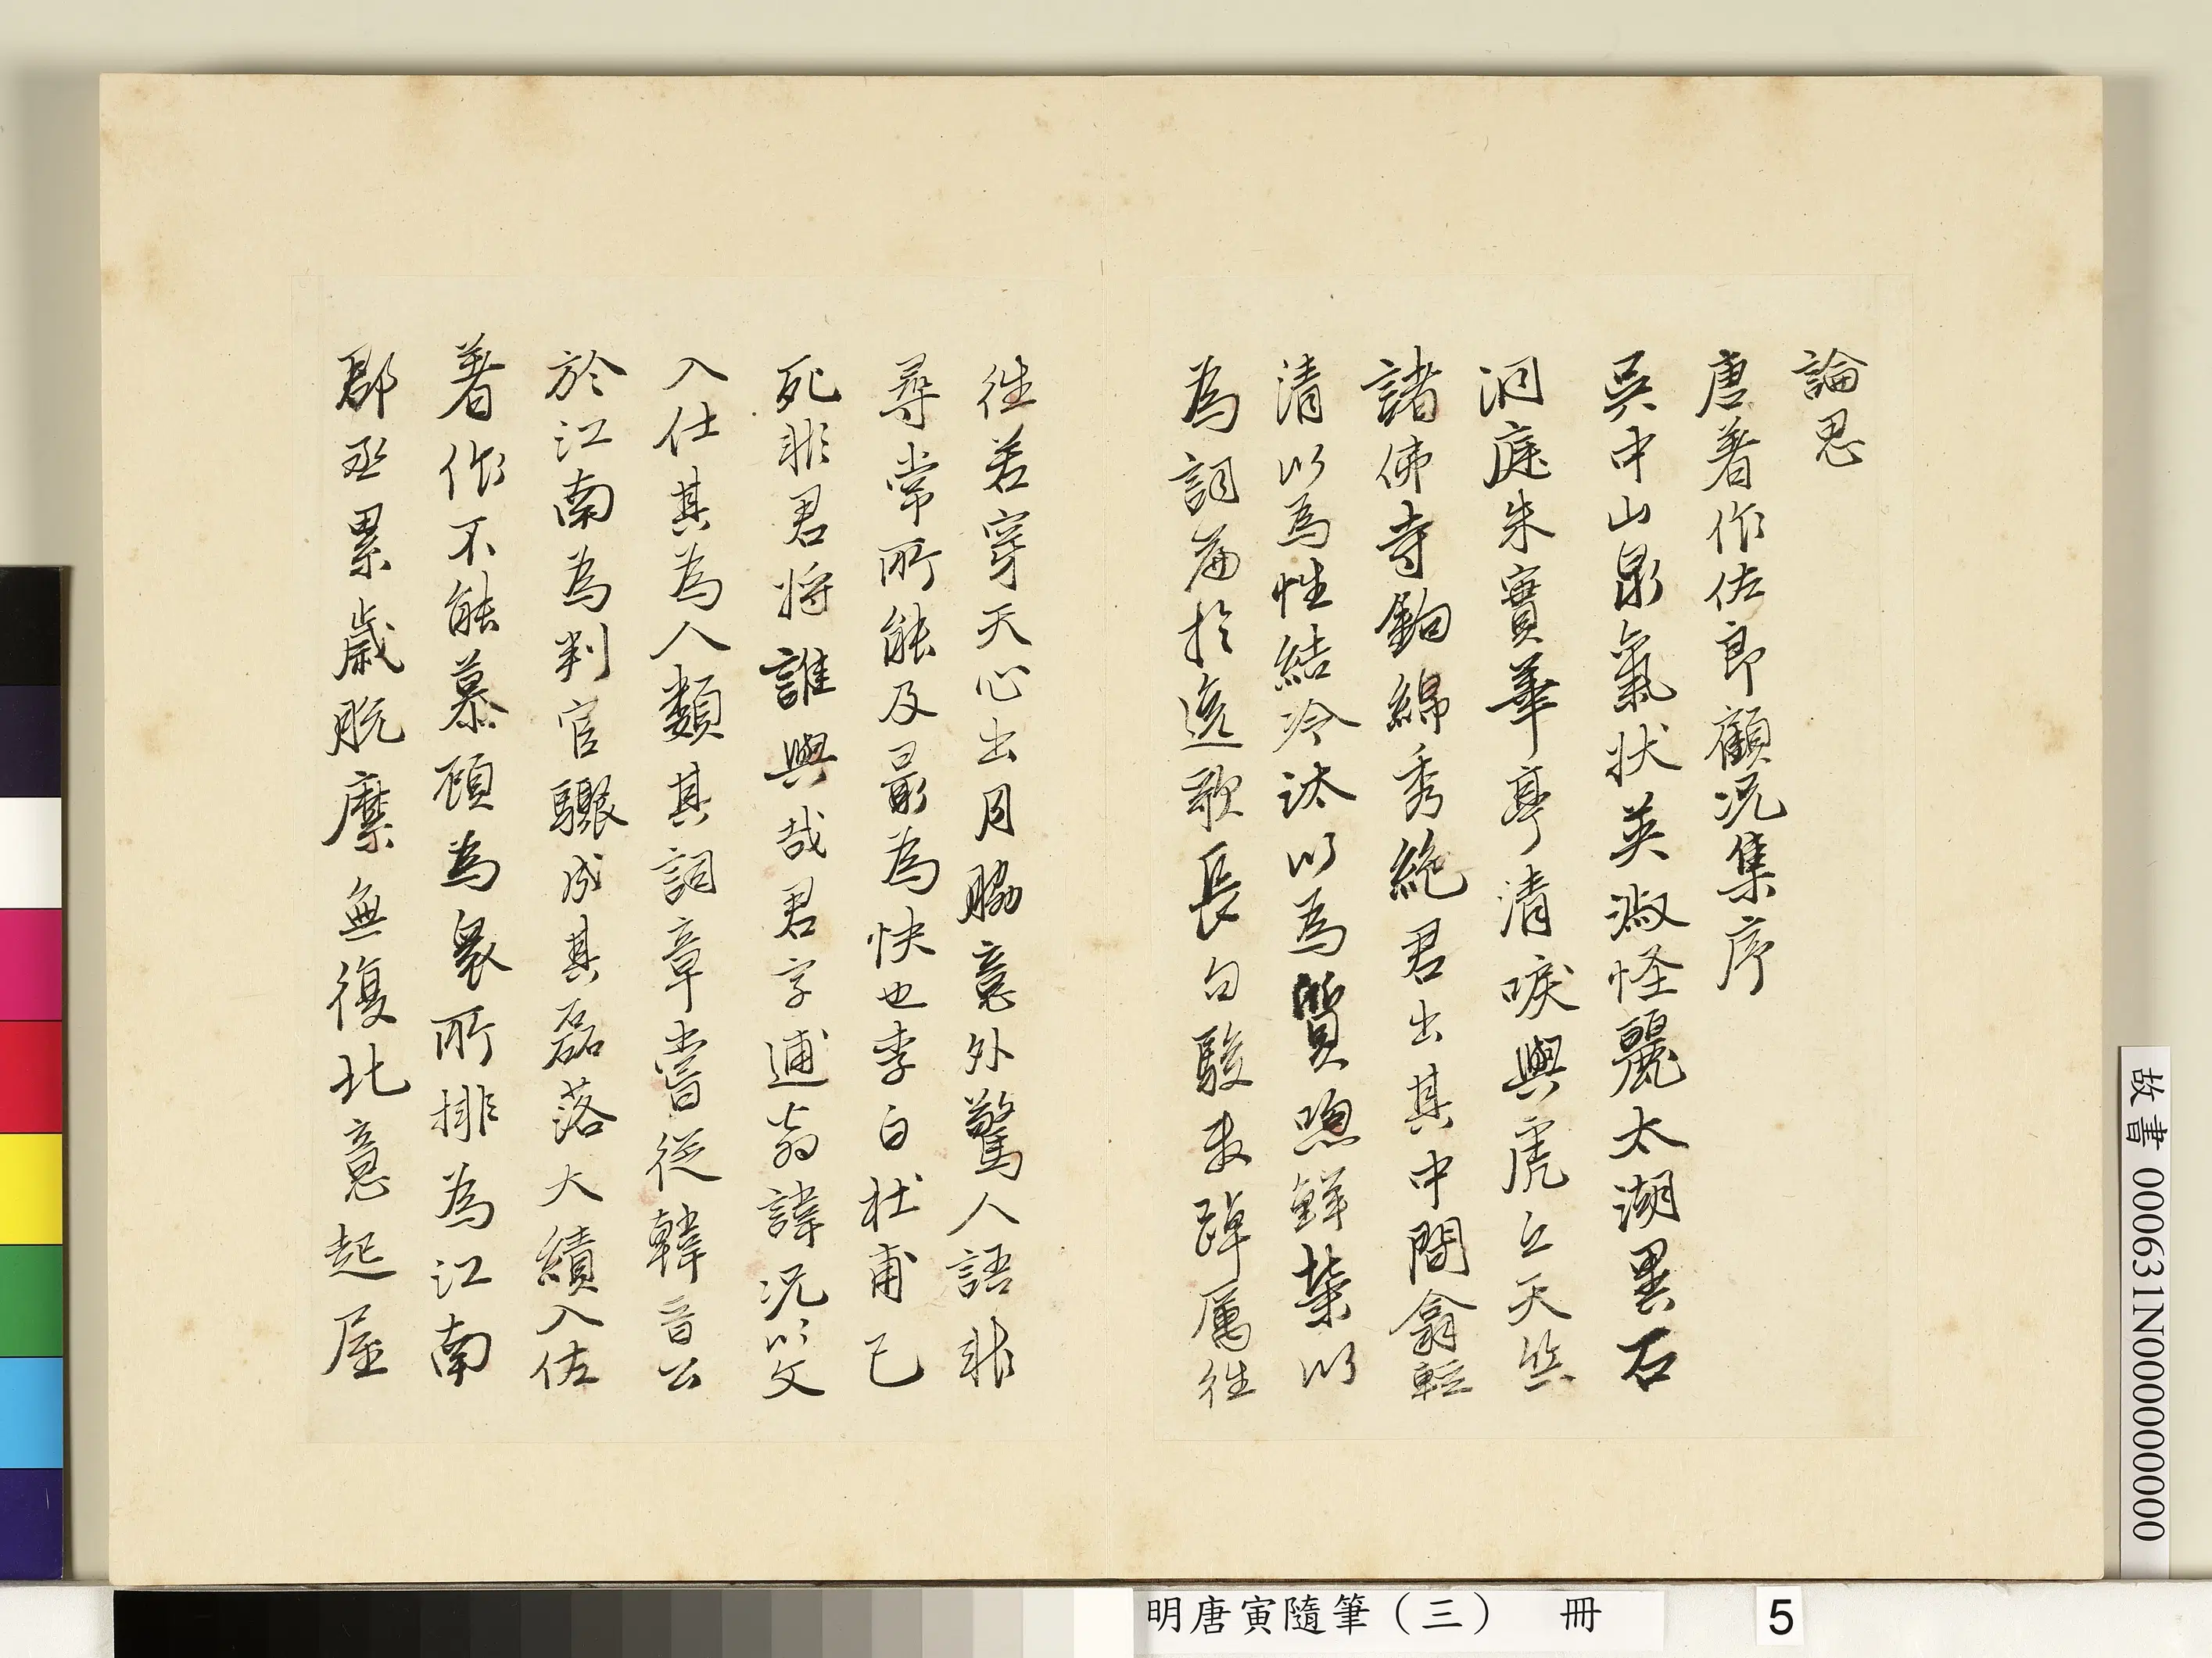 論思
唐著作佐郎顧況集序
吳中山泉氣狀英淑怪麗太湖異石
洞庭朱實華亭清唳與虎丘天竺
諸佛寺鉤綿秀絶君出其中間翕輕
清以為性結泠汰以為質煦鮮榮以
為詞偏於逸歌長句駿發踔厲往
往若穿天心出月脇意外驚人語非
尋常所能及最為快也李白杜甫已
死非君將誰與哉君字逋翁諱況以文
入仕其為人類其詞章嘗從韓晉公
於江南為判官驟成其磊落大績入佐
著作不能慕頋為衆所排為江南
郡丞累歲脫縻無復北意起屋
明唐寅隨筆（三）　冊　5
故書 000631N000000000